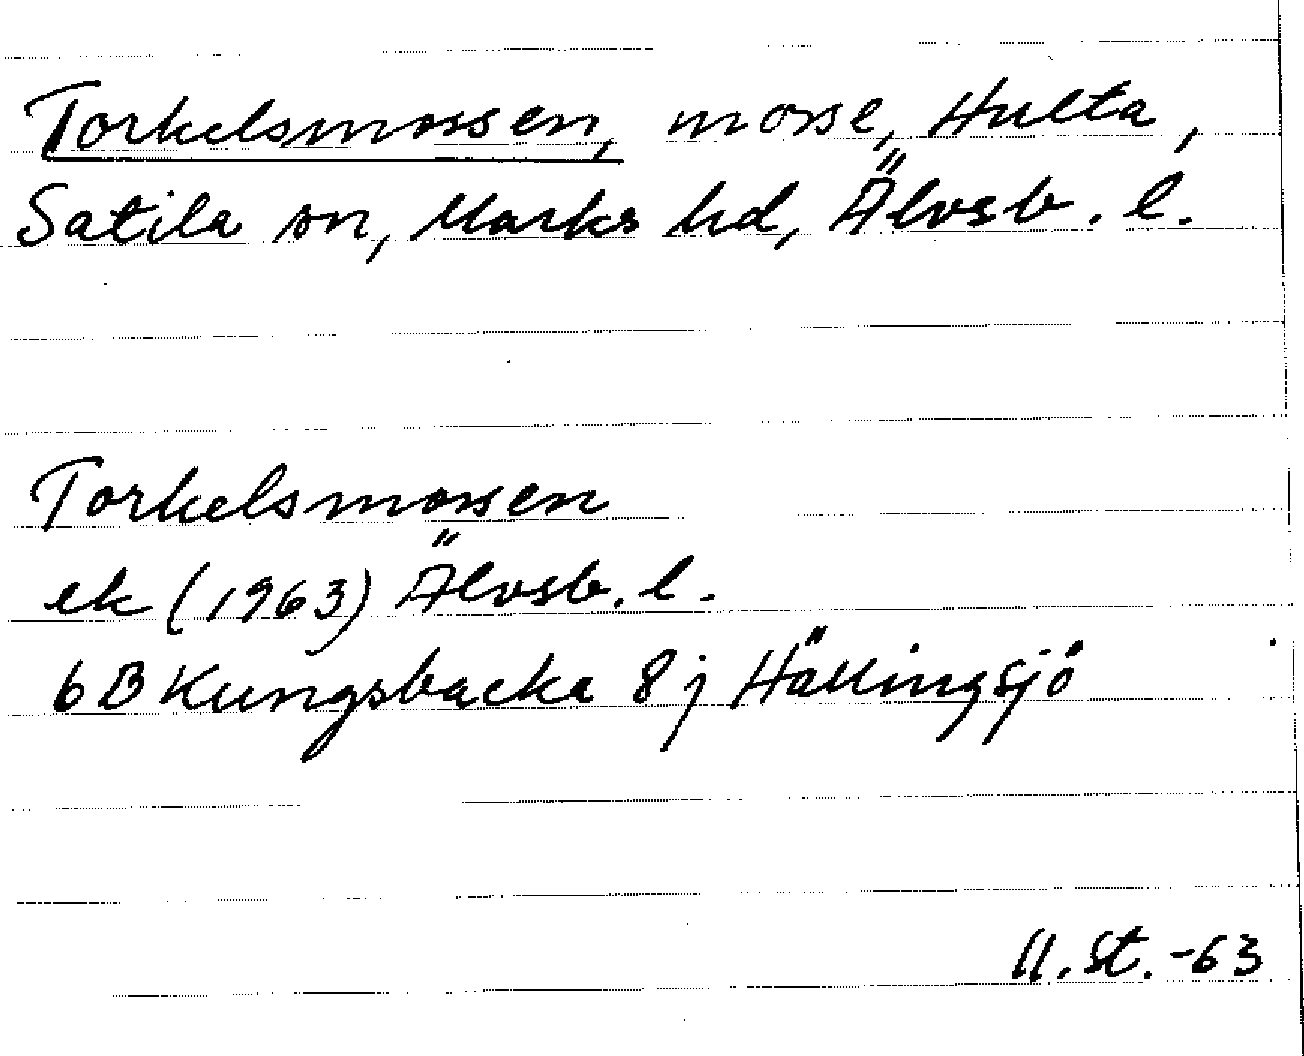 Torkelsmossen, mosse, Hulta,
Sätila sn, Marks hd, Älvsb. l.
Torkelsmossen
ek (1963) Älvsb. l.
6B Kungsbacka 8j Hällingsjö
U. St. -63